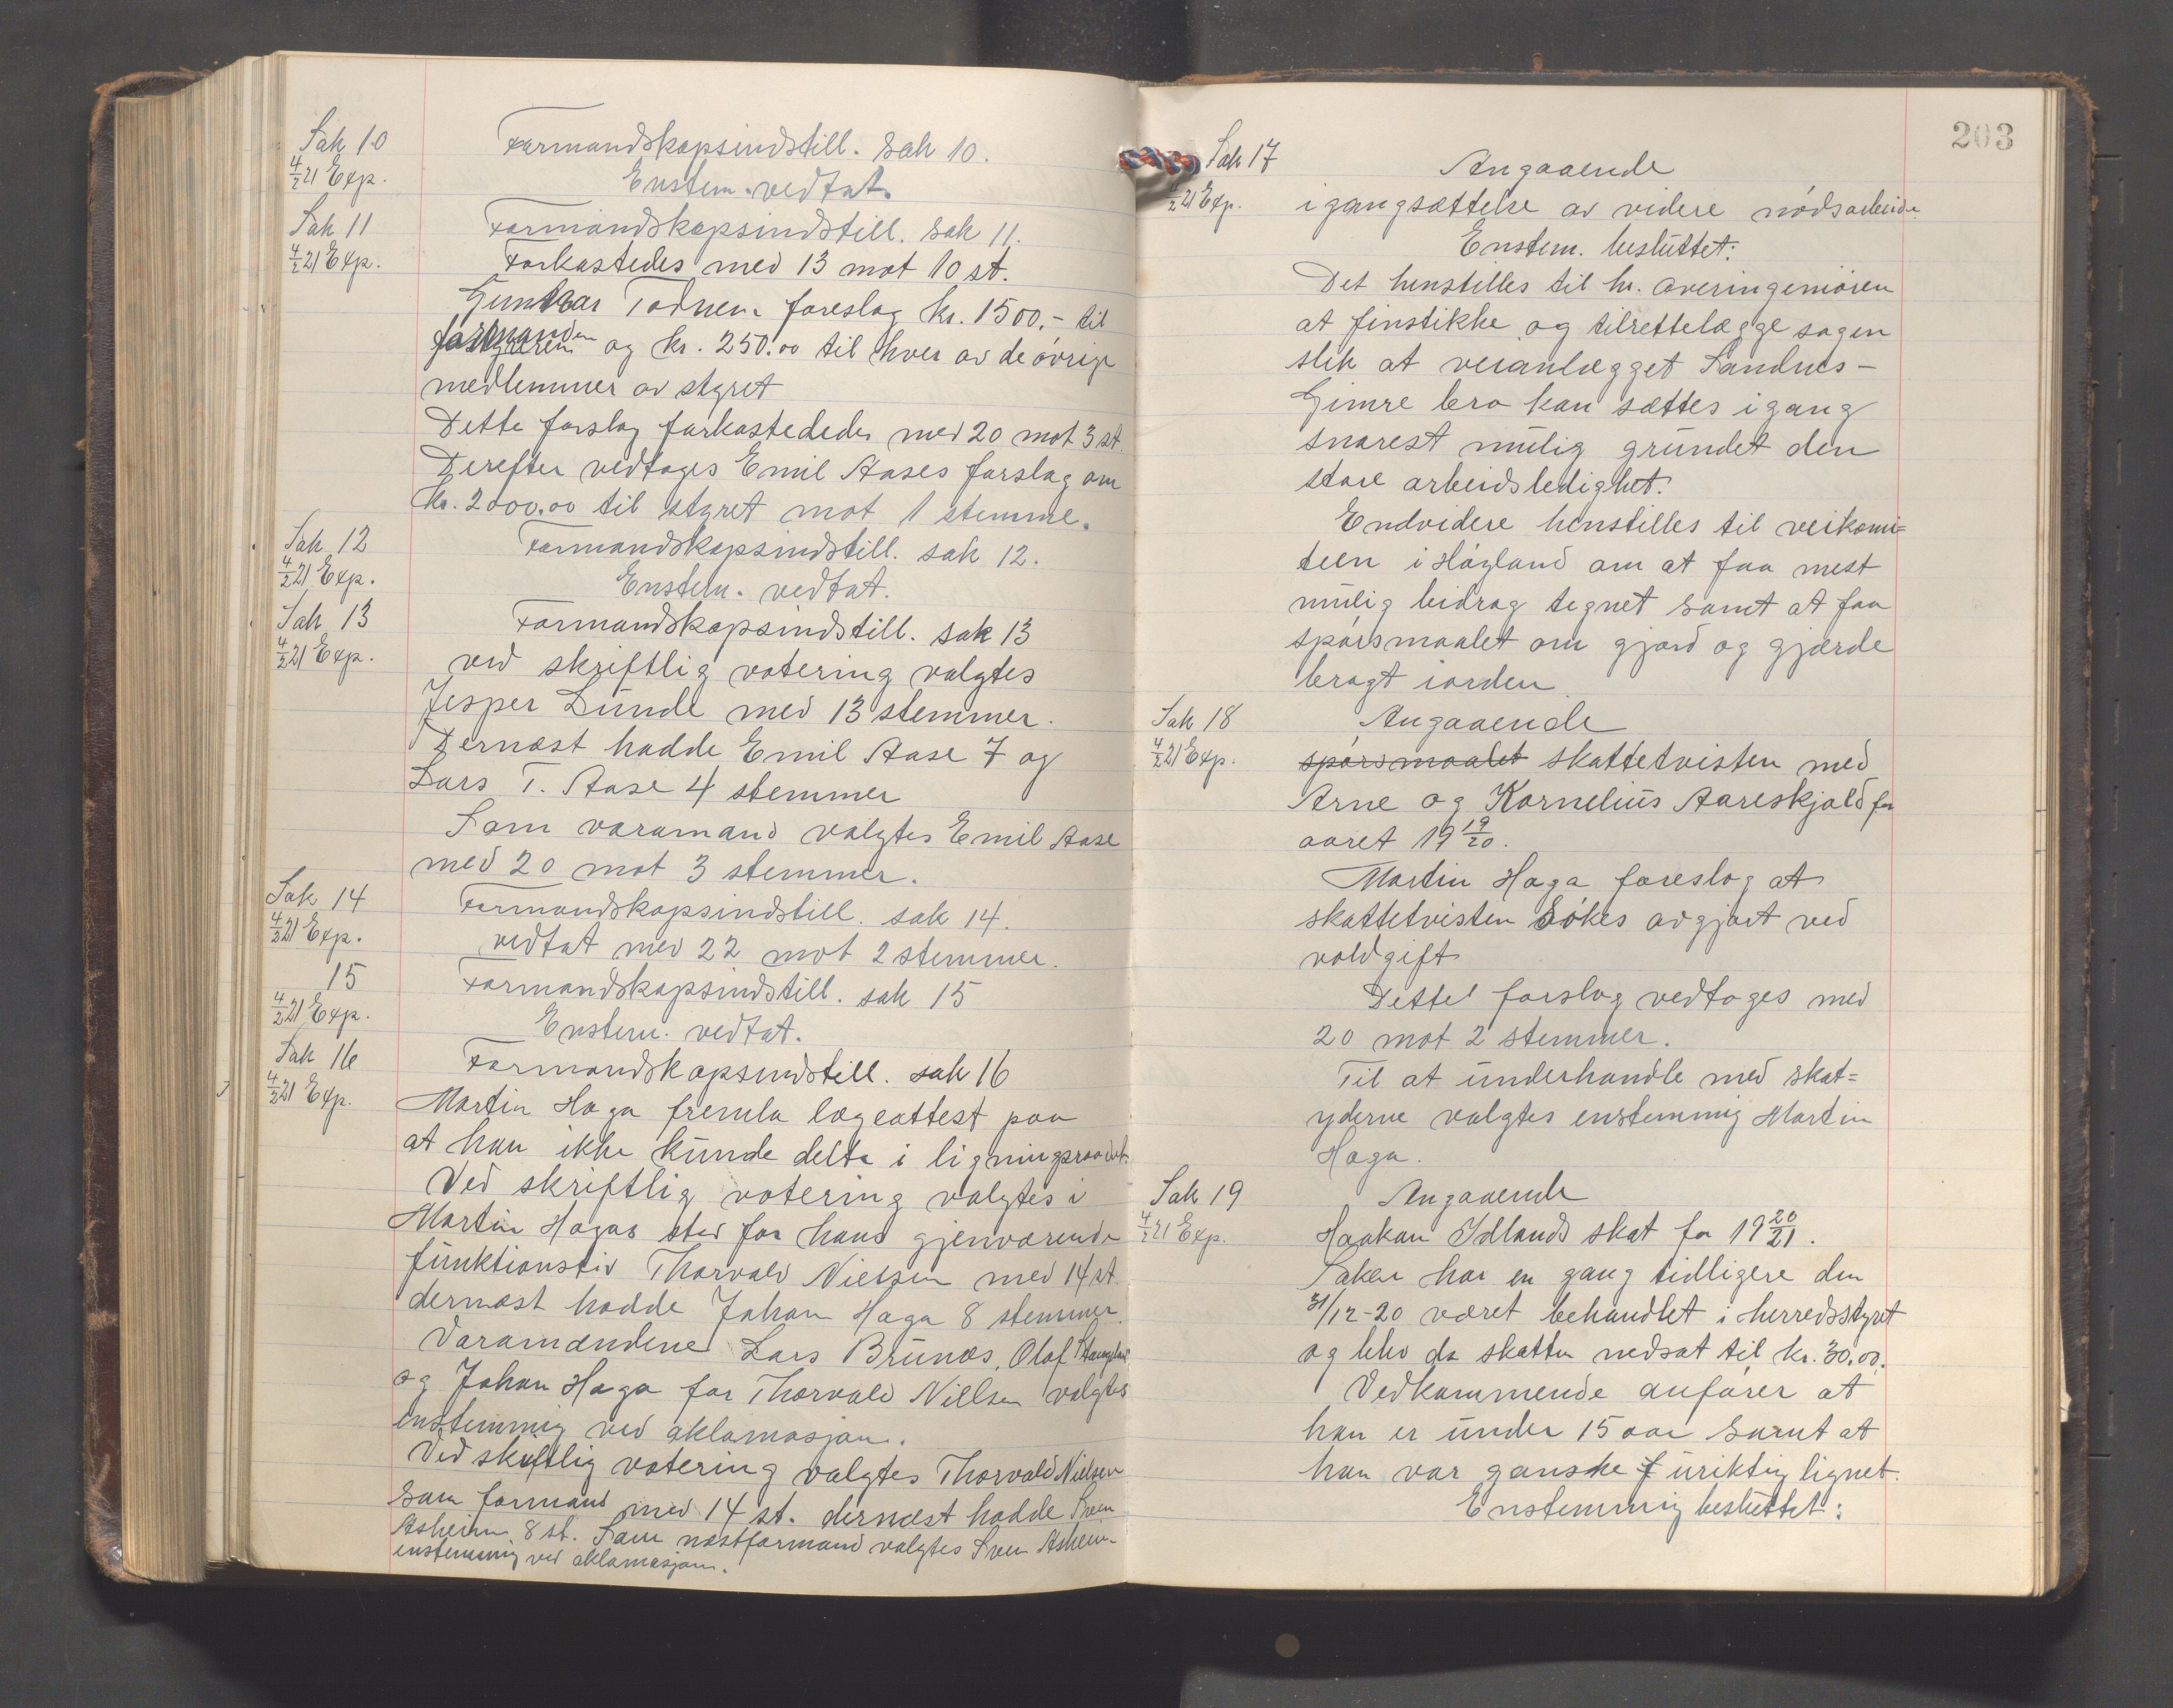 Sak 10
4/2 21 Exp.
Formandskapsindstill. Sak 10.
Enstem. vedtat.
Sak 11
4/2 21 Exp.
Formandskapsindstill. Sak 11.
Forkastedes med 13 mot 10 st.
Gunnar Todnem foreslog kr. 1500,- til
formanden og kr. 250.00 til hver av de övrige
medlemmer av styret
Dette forslag forkastededes med 20 mot 3 st.
Derefter vedtoges Emil Aases forslag om
kr. 2000.00 til styret mot 1 stemme.
Sak 12
4/2 21 Exp.
Formandskapsindstill. sak 12.
Enstem. vedtat.
Sak 13
4/2 21 Exp.
Formandskapsindstill. sak 13
ved skriftlig votering valgtes
Jesper Lunde med 13 stemmer.
Dernæst hadde Emil Aase 7 og
Lars T. Aase 4 stemmer
Som varamand valgtes Emil Aase
med 20 mot 3 stemmer.
Sak 14
4/2 21 Exp.
Formandskapsindstill. sak 14.
vedtat med 22 mot 2 stemmer.
15
4/2 21 Exp.
Formandskapsindstill. sak 15
Enstem. vedtat.
Sak 16
4/2 21 Exp.
Formandskapsindstill. sak 16
Martin Haga fremla lægeattest paa
at han ikke kunde delta i ligningsraadet.
Ved skriftlig votering valgtes i
Martin Hagas sted for hans gjenværende
funktionstid Thorvald Nielsen med 14 st.
dernæst hadde Johan Haga 8 stemmer.
Varamændene Lars Brunes, Olof Stangeland
og Johan Haga for Thorvald Nielsen valgtes
enstemmig ved aklamasjon.
Ved skriftlig votering valgtes Thorvald Nielsen
som formand med 14 st. dernæst hadde Sven
Asheim 8 st. Som næstformand valgtes Sven Asheim
enstemmig ved aklamasjon.
203
Sak 17
4/2 21 Exp.
Angaaende
igangsættelse av videre nödsarbeide
Enstem. besluttet:
Det henstilles til hr. overingeniören
at finstikke og tilrettelægge sagen
slik at veianlægget Sandnes-
Gimre bro kan sættes igang
snarest mulig grundet den
store arbeidsledighet.
Endvidere henstilles til veikomi=
teen i Höyland om at faa mest
mulig bidrag tegnet samt at faa
spörsmaalet om gjord og gjærde
bragt iorden.
Sak 18
4/2 21 Exp.
Angaaende
spörsmaalet skattetvisten med
Arne og Kornelius Aareskjold for
aaret 19 19/20.
Martin Haga foreslog at
skattetvisten sökes avgjort ved
voldgift
Dette forslag vedtoges med
20 mot 2 stemmer.
Til at underhandle med skat=
yderne valgtes enstemmig Martin
Haga.
Sak 19
4/2 21 Exp.
Angaaende
Haakon Idlands skat for 19 20/21.
Saken har en gang tidligere den
31/12-20 været behandlet i herredsstyret
og blev da skatten nedsat til kr. 30.00.
Vedkommende anförer at
han er under 15 aar samt at
han var ganske uriktig lignet.
Enstemmig besluttet: